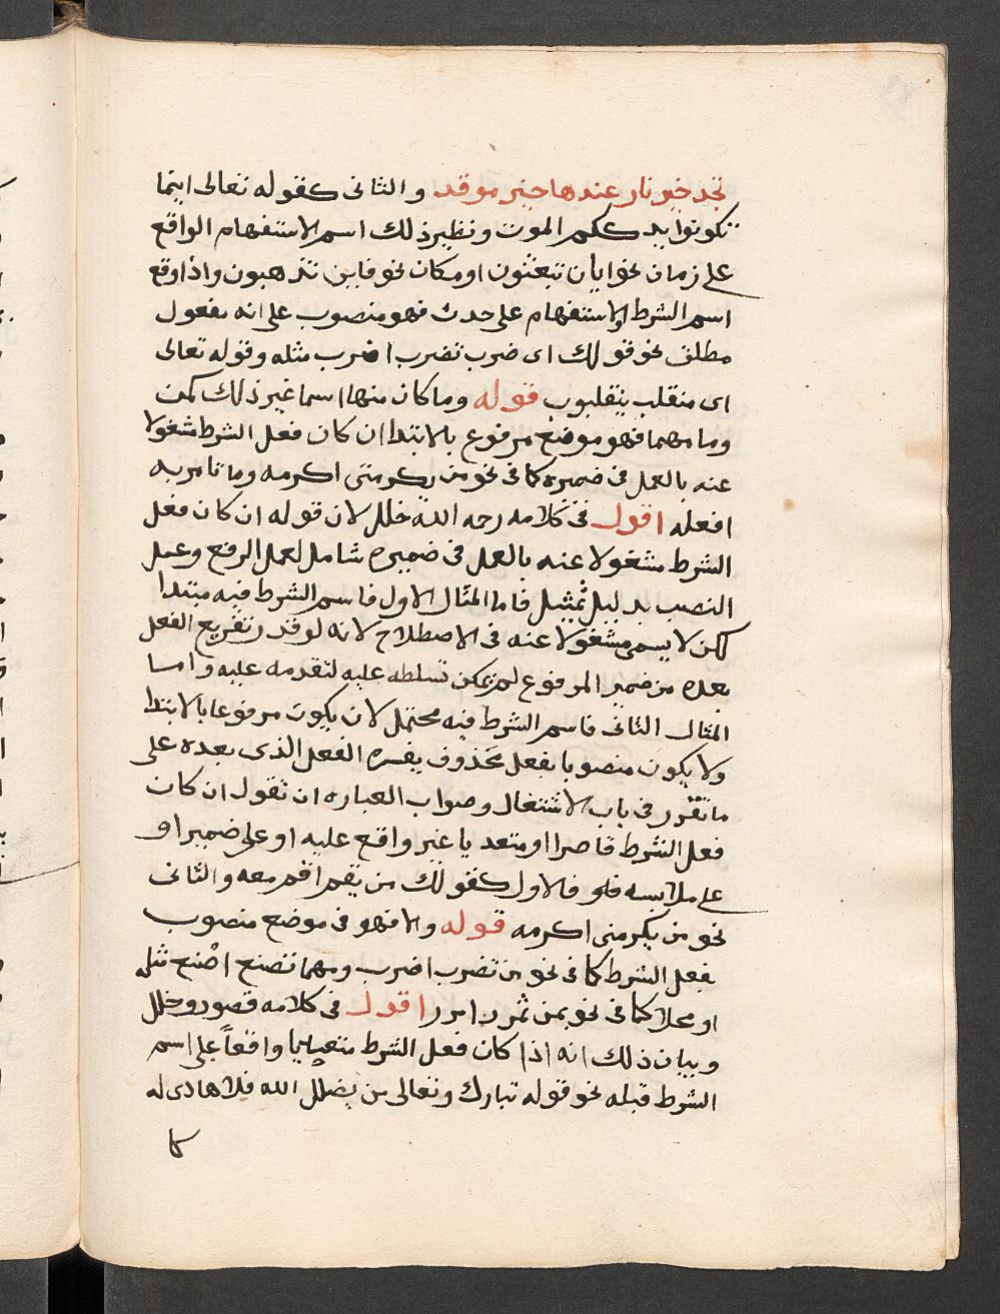 تجد خير نار عندها خير موقد والثانى كقوله تعالى اينما
تكونوا يدرككم الموت ونظير ذلك اسم الاستفهام الواقع
على زمان نحو ايان تبعثون او مكان نحو فاين تذهبون واذا وقع
اسم الشرط او الاستفهام على حدث فهو منصوب على انه مفعول
مطلق نحو قولك اى ضرب تضرب اضرب مثله وقوله تعالى
اى منقلب ينقلبون قوله وما كان منها اسما غير ذلك كمن
وما ومهما فهو موضع مرفوع بالابتدا ان كان فعل الشرط مشغولا
عنه بالعمل فى ضميره كما فى نحو من يكرمنى اكرمه وما تامر به
افعله اقول فى كلامه رحمه الله خلل لان قوله ان كان فعل
الشرط مشغولا عنه بالعمل فى ضميره شامل لعمل الرفع وعمل
النصب بدليل تمثيل فاما المثال الاول فاسم الشرط فيه مبتدا
لكن لا يسمى مشغولا عنه فى الاصطلاح لانه لو قدر تفريع الفعل
بعده من ضمير المرفوع لم يمكن تسلطه عليه لتقدمه عليه واما
المثال الثانى فاسم الشرط فيه محتمل لان يكون مرفوعا بالابتدا
ولا يكون منصوبا بفعل محذوف يفسره الفعل الذى بعده على
ما تقرر فى باب الاشتغال وصواب العباره ان تقول ان كان
فعل الشرط قاصرا او متعديا غير واقع عليه او على ضميرا و
على ملابسه فالاول كقولك من يقم اقم معه والثانى
نحو من يكرمنى اكرمه قوله والا فهو فى موضع منصوب
بفعل الشرط كما فى نحو من تضرب اضرب ومهما تصنع اصنع مثله
او محلا كما فى نحو بمن تمرر امرر اقول فى كلامه قصور وخلل
وبيان ذلك انه اذا كان فعل الشرط متعديا واقعاً على اسم
الشرط قبله نحو قوله تبارك وتعالى من يضلل الله فلا هادى له
كا